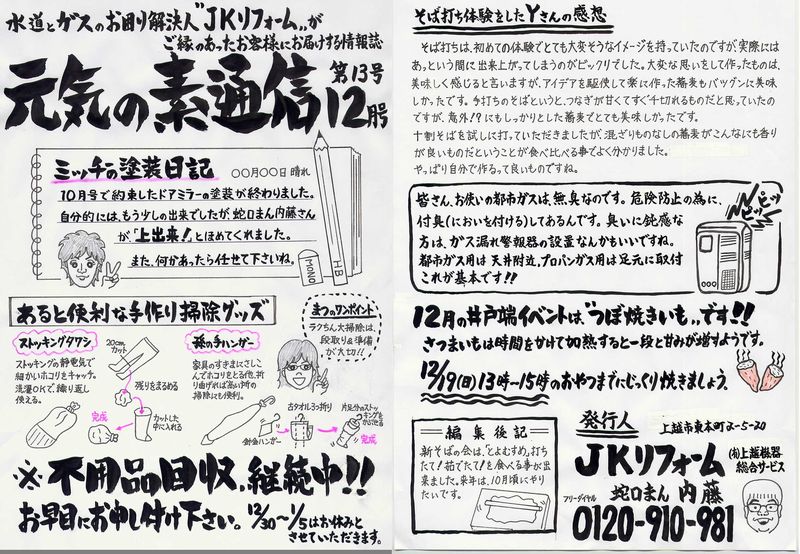 水道とガスのお困り解決人"JKリフォーム"が
ご縁のあったお客様にお届けする情報誌
元気の素通信 第13号 12月号
ミッチの塗装日記 ○○月○○日 晴れ
10月号で約束したドアミラーの塗装が終わりました。
自分的には、もう少しの出来でしたが、蛇口まん内藤さん
が、「上出来!」とほめてくれました。
また、何かあったら任せて下さいね。
MONO
HB
あると便利な手作り掃除グッズ
ストッキングタワシ
ストッキングの静電気で
細かいホコリをキャッチ。
洗濯OKで、繰り返し
使える。
20cm
カット
残りをまるめる
カットした
中に入れる
完成
孫の手ハンガー
家具のすきまにさしこ
んでホコリをとる他、折
り曲げれば高い所の
掃除にも便利。
針金ハンガー
古タオル3つ折り
片足分のストッ
キングをかぶせる
完成
まつのワンポイント
ラクちん大掃除は、
段取り&準備
が大切!!
※不用品回収、継続中!!
お早目にお申し付け下さい。12/30~1/5はお休みと
させていただきます。
そば打ち体験をしたYさんの感想
そば打ちは、初めての体験でとても大変そうなイメージを持っていたのですが、実際には
あっという間に出来上がってしまうのがビックリでした。大変な思いをして作ったものは、
美味しく感じると言いますが、アイデアを駆使して楽に作った蕎麦もバツグンに美味
しかったです。手打ちのそばというと、つなぎが甘くてすぐ千切れるものだと思っていたの
ですが、意外!?にもしっかりとした蕎麦でとても美味しかったです。
十割そばを試しに打っていただきましたが、混ざりものなしの蕎麦がこんなにも香り
が良いものだということが食べ比べる事でよく分かりました。
やっぱり自分で作るって良いものですね。
皆さん、お使いの都市ガスは、無臭なのです。危険防止の為に、
付臭(においを付ける)してあるんです。臭いに鈍感な
方は、ガス漏れ警報器の設置なんかもいいですね。
都市ガス用は天井附近、プロパンガス用は足元に取付
これが基本です!!
ピッ ピッ
12月の井戸端イベントは、"つぼ焼きいも"です!!
さつまいもは時間をかけて加熱すると一段と甘みが増すようです。
12/19(日)13時~15時のおやつまでにじっくり焼きましょう。
編集後記
新そばの会は、「とよむすめ」打ち
たて!茹でたて!を食べる事が出
来ました。来年は、10月頃にやり
たいです。
発行人 上越市東本町2-5-20
JKリフォーム (有)上越機器
総合サービス
蛇口まん 内藤
フリーダイヤル
0120-910-981